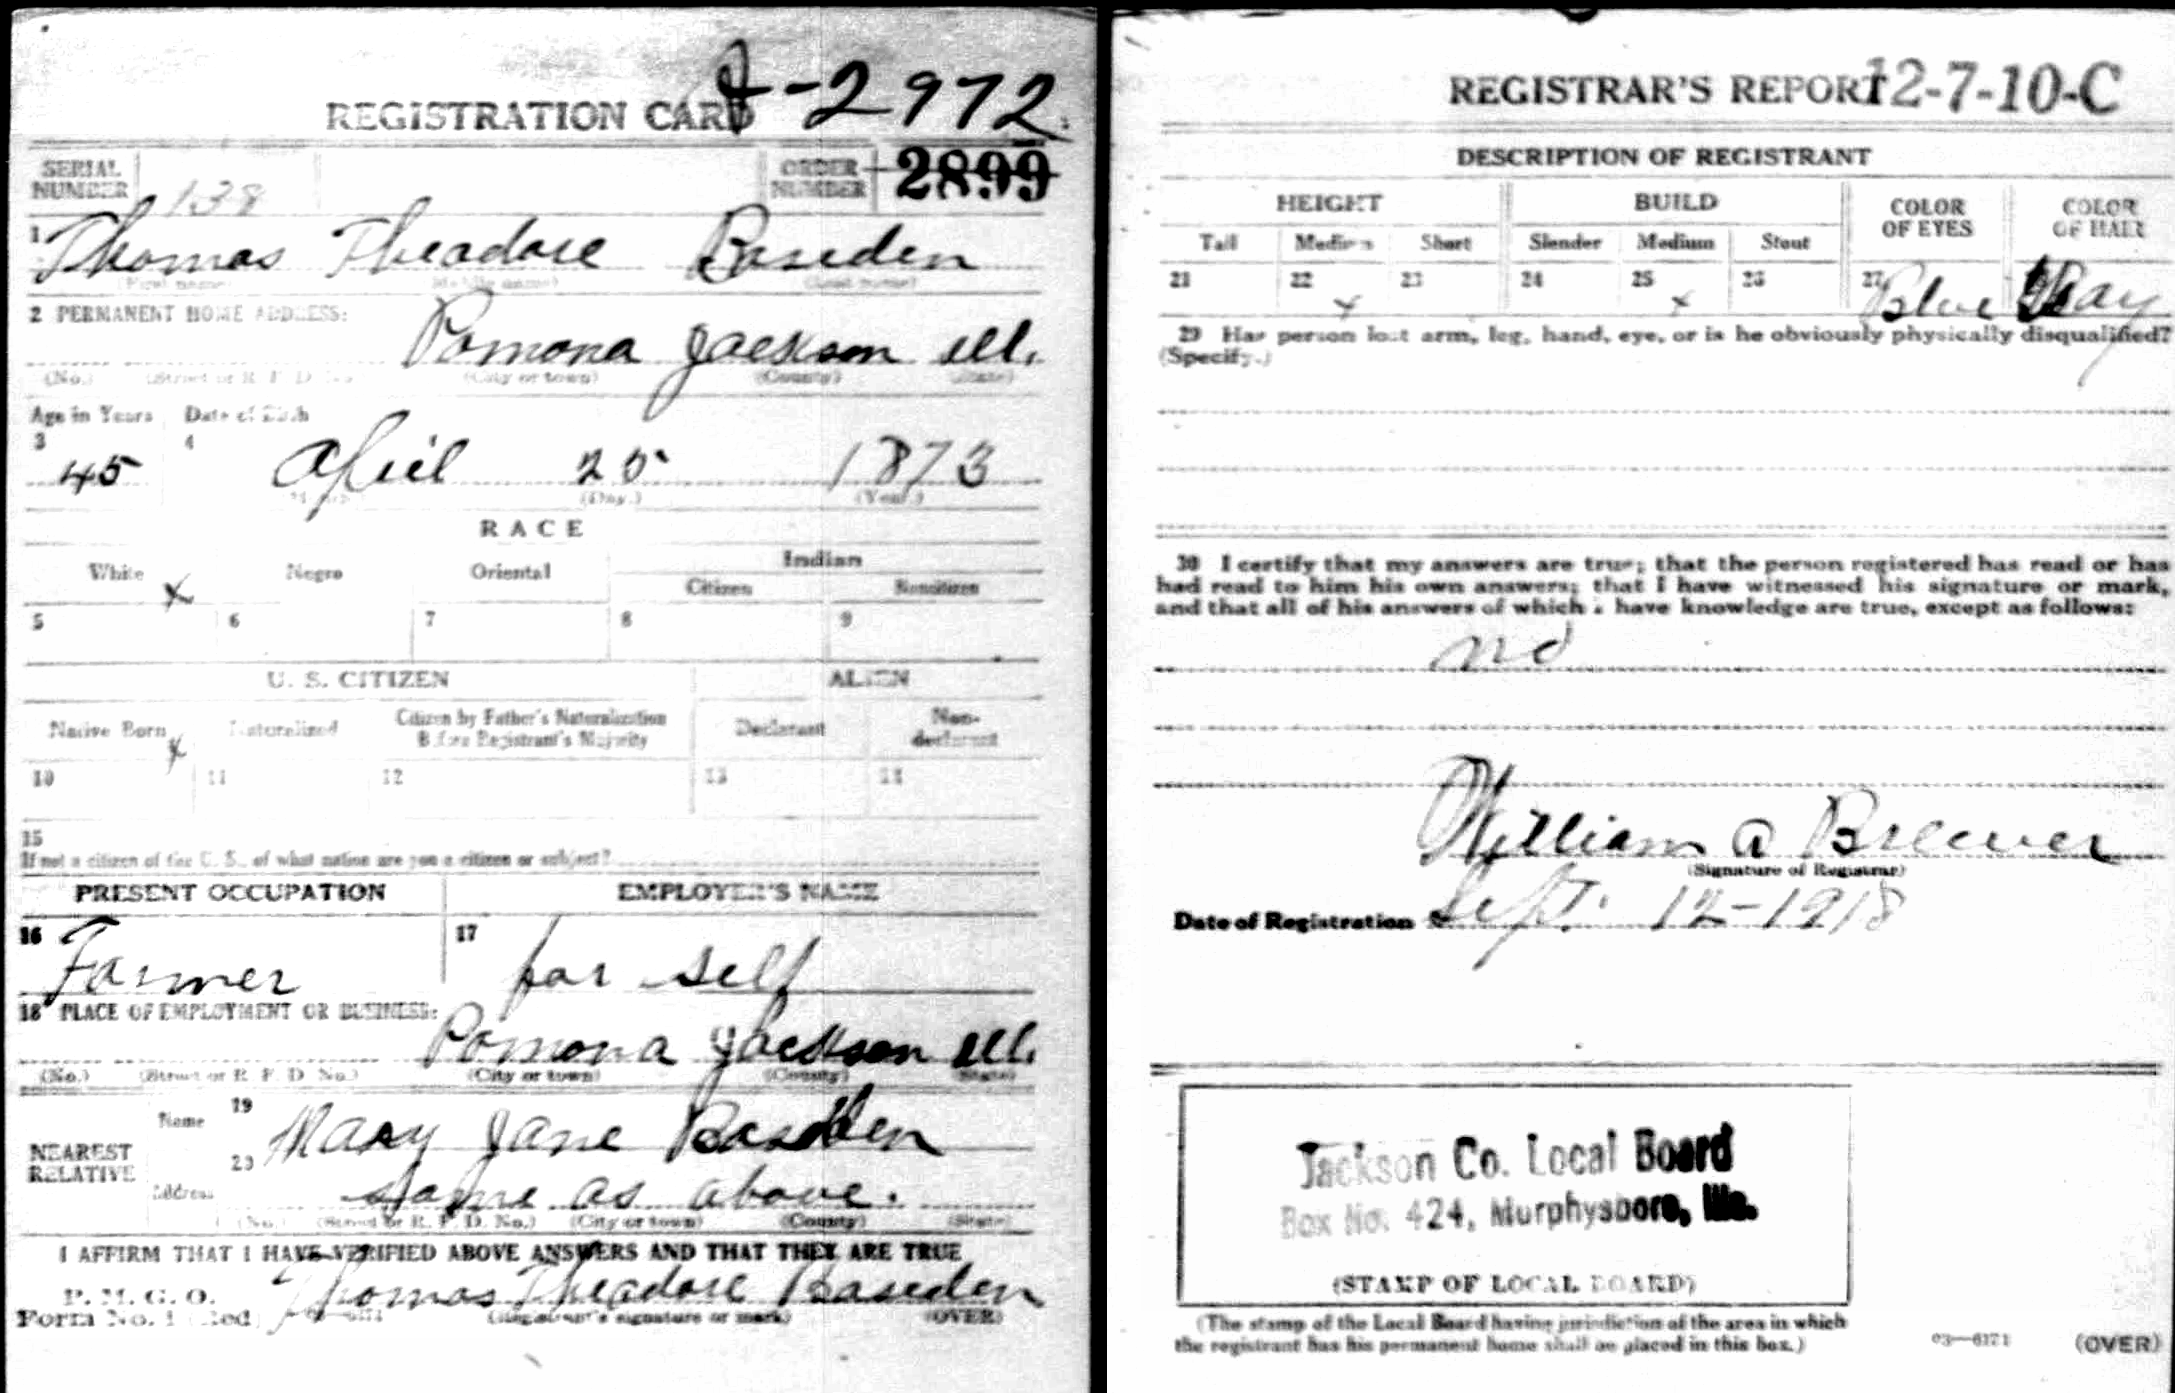 REGISTRATION CARD -2972
SERIAL NUMBER 138 ORDER NUMBER 2899
1 Thomas Theadore Baseden
(First name) (Middle name) (Last name)
2 PERMANENT HOME ADDRESS:
Pomona Jackson Ill.
(No.) (Street or R. F. D. No.) (City or town) (County) (State)
Age in Years Date of Birth
3 4
45 April 25 1873
(Day.) (Year.)
RACE
White x Negro Oriental Indian
Citizen Noncitizen
5 6 7 8 9
U. S. CITIZEN ALIEN
Native Born x Naturalized Citizen by Father's Naturalization Before Registrant's Majority Declarant Non-declarant
10 11 12 13 14
15
If not a citizen of the U. S., of what nation are you a citizen or subject?
PRESENT OCCUPATION EMPLOYER'S NAME
16 Farmer 17 for self
18 PLACE OF EMPLOYMENT OR BUSINESS:
Pomona Jackson Ill.
(No.) (Street or R. F. D. No.) (City or town) (County) (State)
NEAREST RELATIVE
Name 19 Mary Jane Baseden
Address 20 same as above.
(No.) (Street or R. F. D. No.) (City or town) (County) (State)
I AFFIRM THAT I HAVE VERIFIED ABOVE ANSWERS AND THAT THEY ARE TRUE
P. M. G. O.
Form No. 1 (Red) Thomas Theadore Baseden
(Registrant's signature or mark) (OVER)
REGISTRAR'S REPORT 12-7-10-C
DESCRIPTION OF REGISTRANT
HEIGHT BUILD COLOR OF EYES COLOR OF HAIR
Tall Medium Short Slender Medium Stout
21 22 x 23 24 25 x 26 27 Blue Gray
29 Has person lost arm, leg, hand, eye, or is he obviously physically disqualified?
(Specify.)
30 I certify that my answers are true; that the person registered has read or has
had read to him his own answers; that I have witnessed his signature or mark,
and that all of his answers of which I have knowledge are true, except as follows:
no
William A Brewer
(Signature of Registrar)
Date of Registration Sept. 12-1918
Jackson Co. Local Board
Box No. 424, Murphysboro, Ills.
(STAMP OF LOCAL BOARD)
(The stamp of the Local Board having jurisdiction of the area in which
the registrant has his permanent home shall be placed in this box.)
03—6171 (OVER)